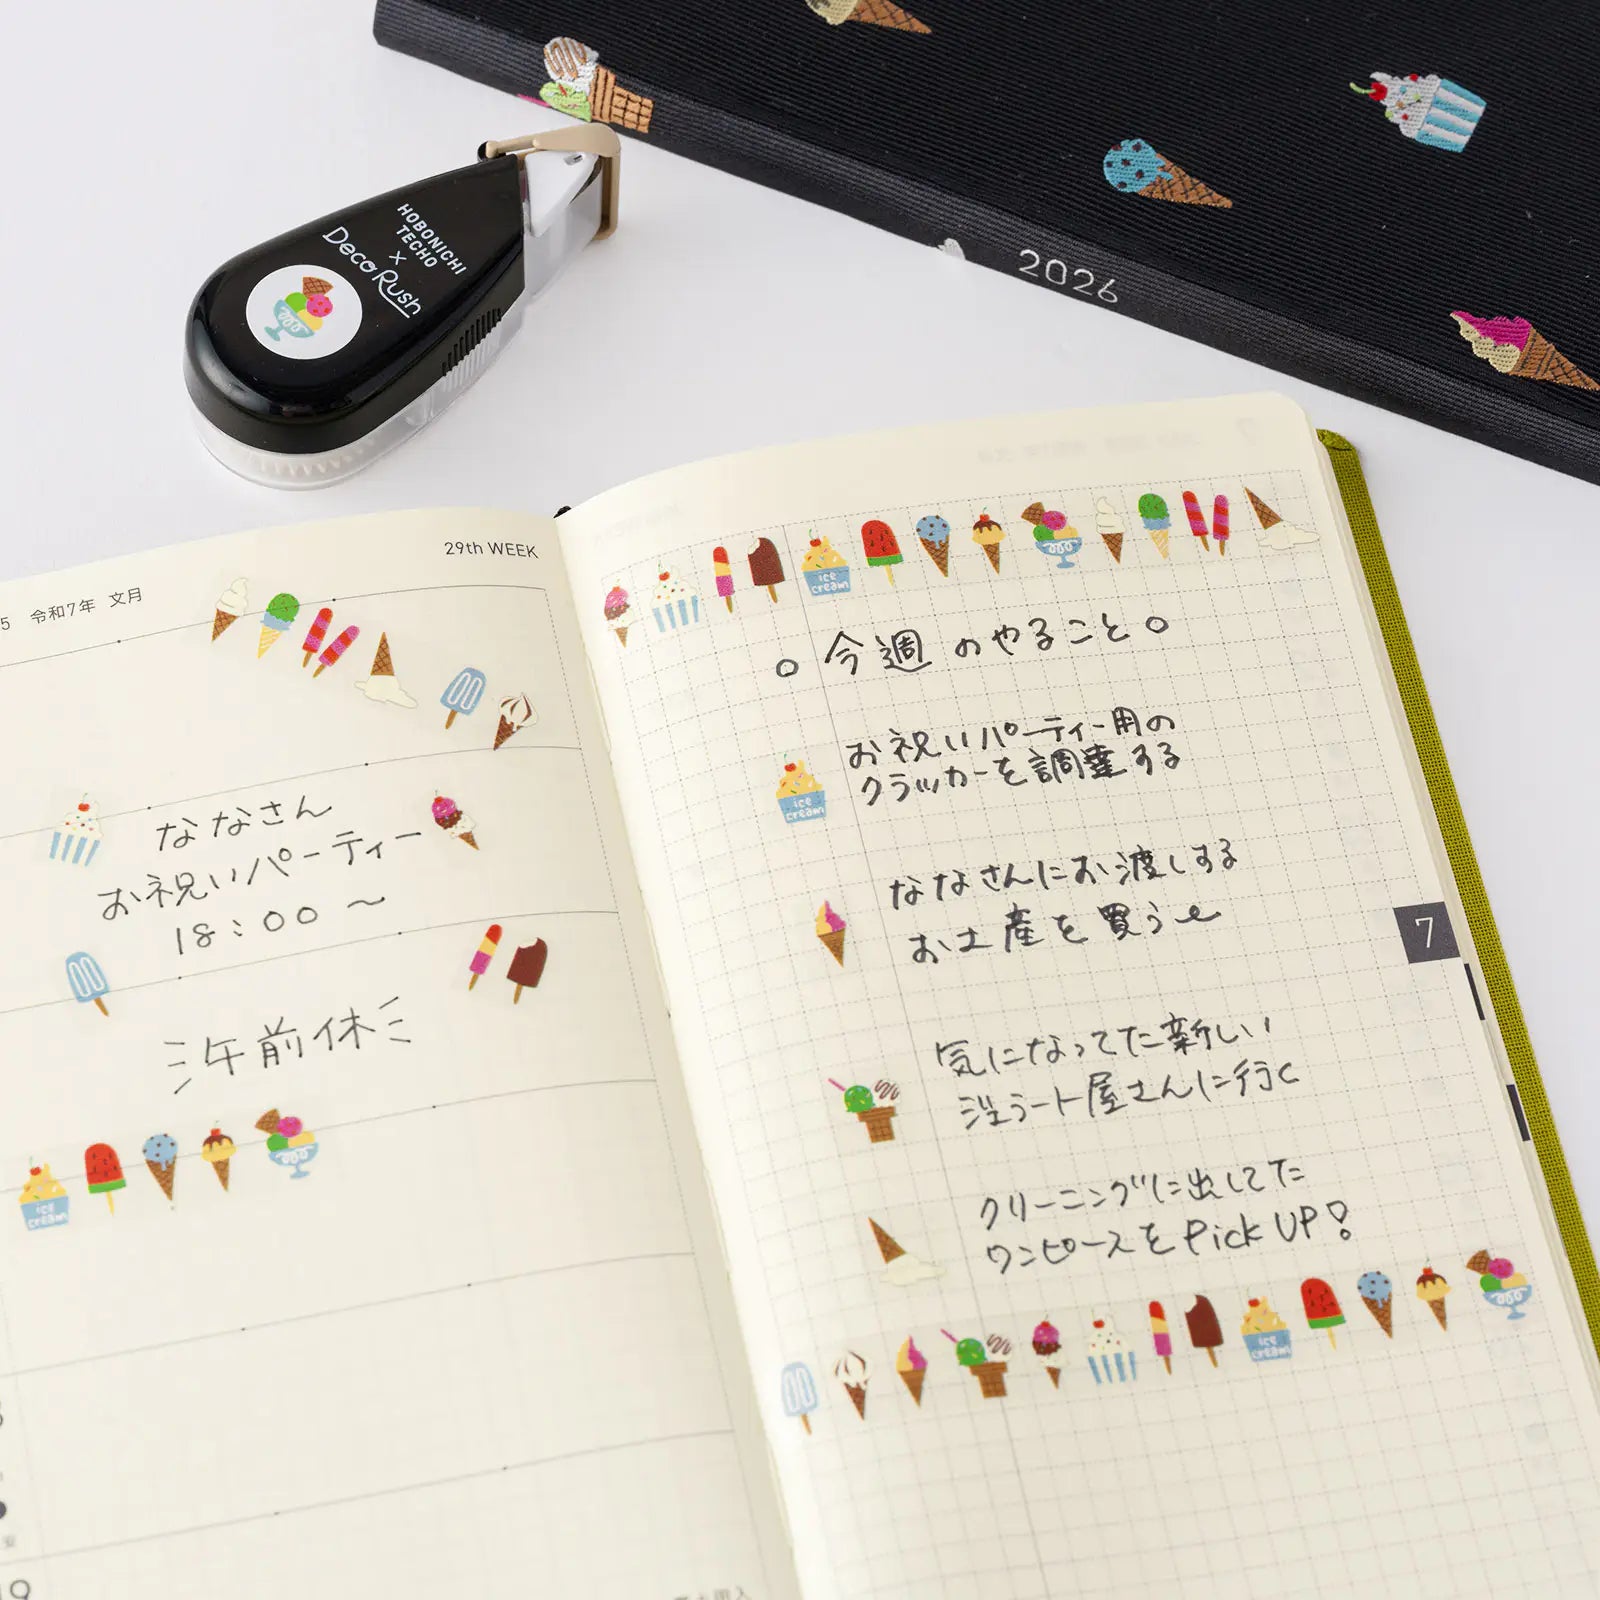 HOBONICHI
TECHO
×
DecoRush
2026
29th WEEK
5 令和7年 文月
ななさん
お祝いパーティー
18:00～
午前休
○今週のやること○
お祝いパーティー用の
クラッカーを調達する
ななさんにお渡しする
お土産を買う
気になってた新しい
ジェラート屋さんに行く
クリーニングに出してた
ワンピースをPick UP!
7
ice
cream
ice
cream
ice
cream
ice
cream